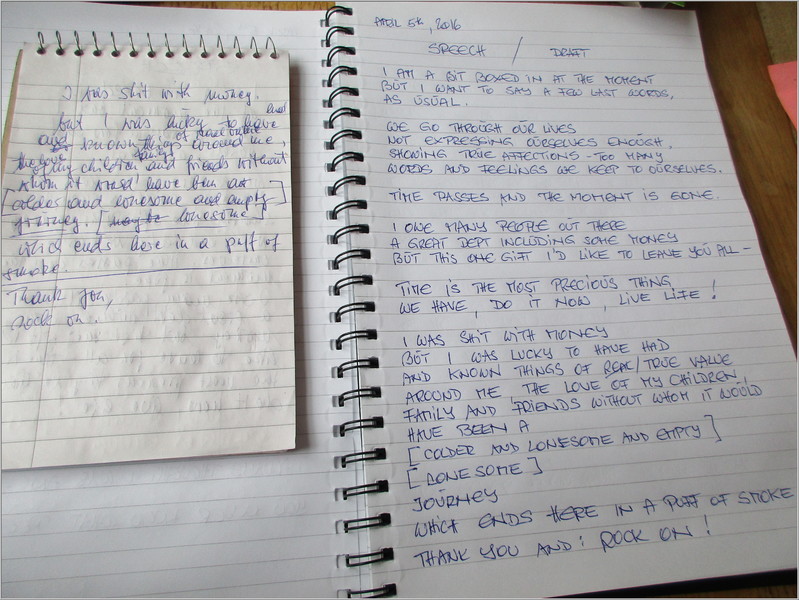 I was shit with money.
had
but I was lucky to have
and known things of real value
around me,
the love
of my children and friends without
whom it would have been a
[colder and lonesome and empty]
journey. [maybe lonesome]
which ends here in a puff of
smoke.
Thank you,
rock on.
APRIL 5th, 2016
SPEECH / DRAFT
I AM A BIT BOXED IN AT THE MOMENT
BUT I WANT TO SAY A FEW LAST WORDS,
AS USUAL.
WE GO THROUGH OUR LIVES
NOT EXPRESSING OURSELVES ENOUGH.
SHOWING TRUE AFFECTIONS - TOO MANY
WORDS AND FEELINGS WE KEEP TO OURSELVES.
TIME PASSES AND THE MOMENT IS GONE.
I OWE MANY PEOPLE OUT THERE
A GREAT DEPT INCLUDING SOME MONEY
BUT THIS ONE GIFT I'D LIKE TO LEAVE YOU ALL -
TIME IS THE MOST PRECIOUS THING
WE HAVE, DO IT NOW, LIVE LIFE!
I WAS SHIT WITH MONEY
BUT I WAS LUCKY TO HAVE HAD
AND KNOWN THINGS OF REAL/TRUE VALUE
AROUND ME, THE LOVE OF MY CHILDREN,
FAMILY AND FRIENDS WITHOUT WHOM IT WOULD
HAVE BEEN A
[COLDER AND LONESOME AND EMPTY]
[LONESOME]
JOURNEY
WHICH ENDS HERE IN A PUFF OF SMOKE
THANK YOU AND: ROCK ON!